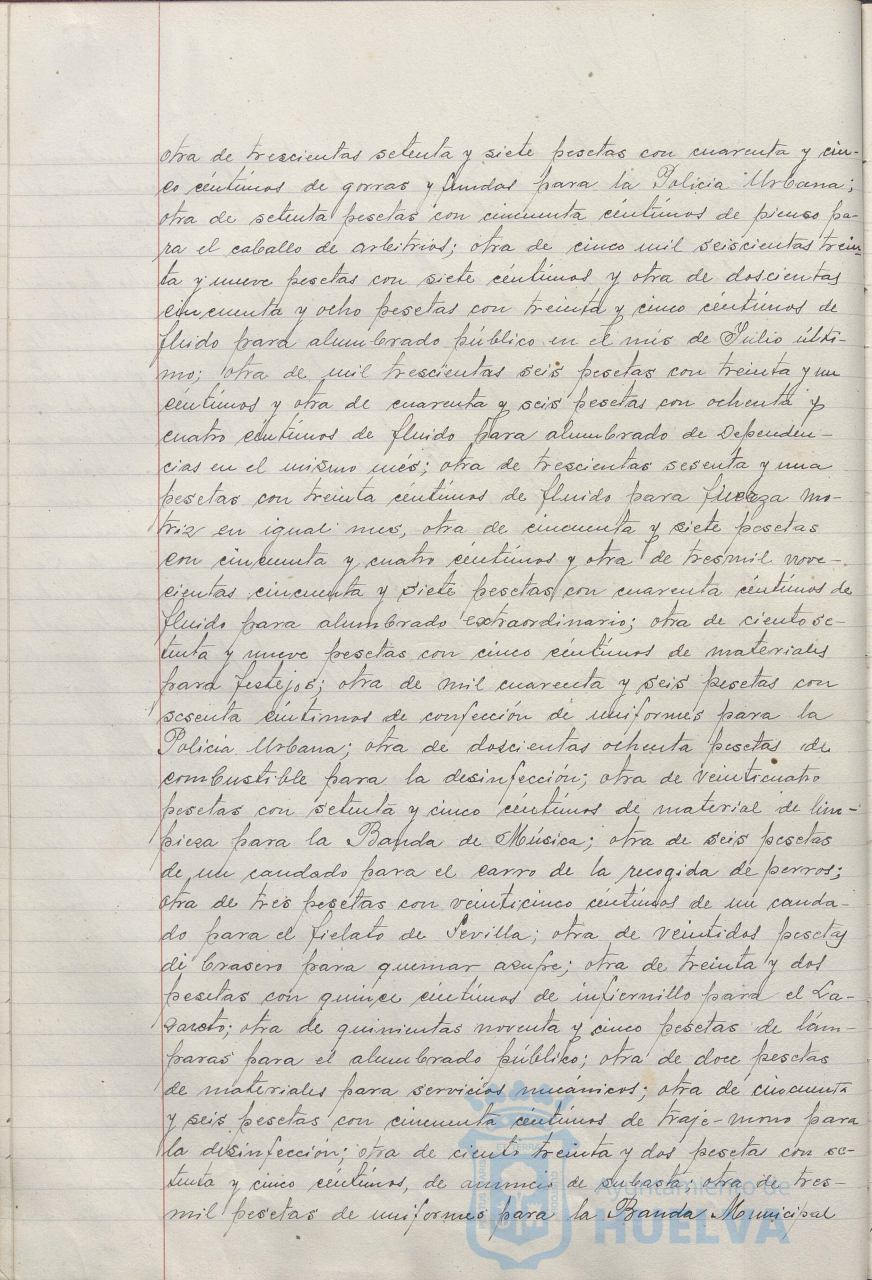 otra de trescientas setenta y siete pesetas con cuarenta y cin-
co céntimos de gorras y fundas para la Policia Urbana;
otra de setenta pesetas con cincuenta céntimos de pienso pa-
ra el caballo de arbitrios; otra de cinco mil seiscientas trein-
ta y nueve pesetas con siete céntimos y otra de doscientas
cincuenta y ocho pesetas con treinta y cinco céntimos de
fluido para alumbrado público en el mes de Julio últi-
mo; otra de mil trescientas seis pesetas con treinta y un
céntimos y otra de cuarenta y seis pesetas con ochenta y
cuatro céntimos de fluido para alumbrado de Dependen-
cias en el mismo més; otra de trescientas sesenta y una
pesetas con treinta céntimos de fluido para fuerza mo-
triz en igual mes, otra de cincuenta y siete pesetas
con cincuenta y cuatro céntimos y otra de tresmil nove-
cientas cincuenta y siete pesetas con cuarenta céntimos de
fluido para alumbrado extraordinario; otra de ciento se-
tenta y nueve pesetas con cinco céntimos de materiales
para festejos; otra de mil cuarenta y seis pesetas con
sesenta céntimos de confección de uniformes para la
Policia Urbana; otra de doscientas ochenta pesetas de
combustible para la desinfección; otra de veinticuatro
pesetas con setenta y cinco céntimos de material de lim-
pieza para la Banda de Música; otra de seis pesetas
de un candado para el carro de la recogida de perros;
otra de tres pesetas con veinticinco céntimos de un canda-
do para el fielato de Sevilla; otra de veintidos pesetas
de brasero para quemar azufre; otra de treinta y dos
pesetas con quince céntimos de infiernillo para el La-
zareto; otra de quinientas noventa y cinco pesetas de lám-
paras para el alumbrado público; otra de doce pesetas
de materiales para servicios mecánicos; otra de cincuenta
y seis pesetas con cincuenta céntimos de traje-mono para
la desinfección; otra de ciento treinta y dos pesetas con se-
tenta y cinco céntimos, de anuncio de subasta; otra de tres-
mil pesetas de uniformes para la Banda Municipal
Ayuntamiento de
HUELVA